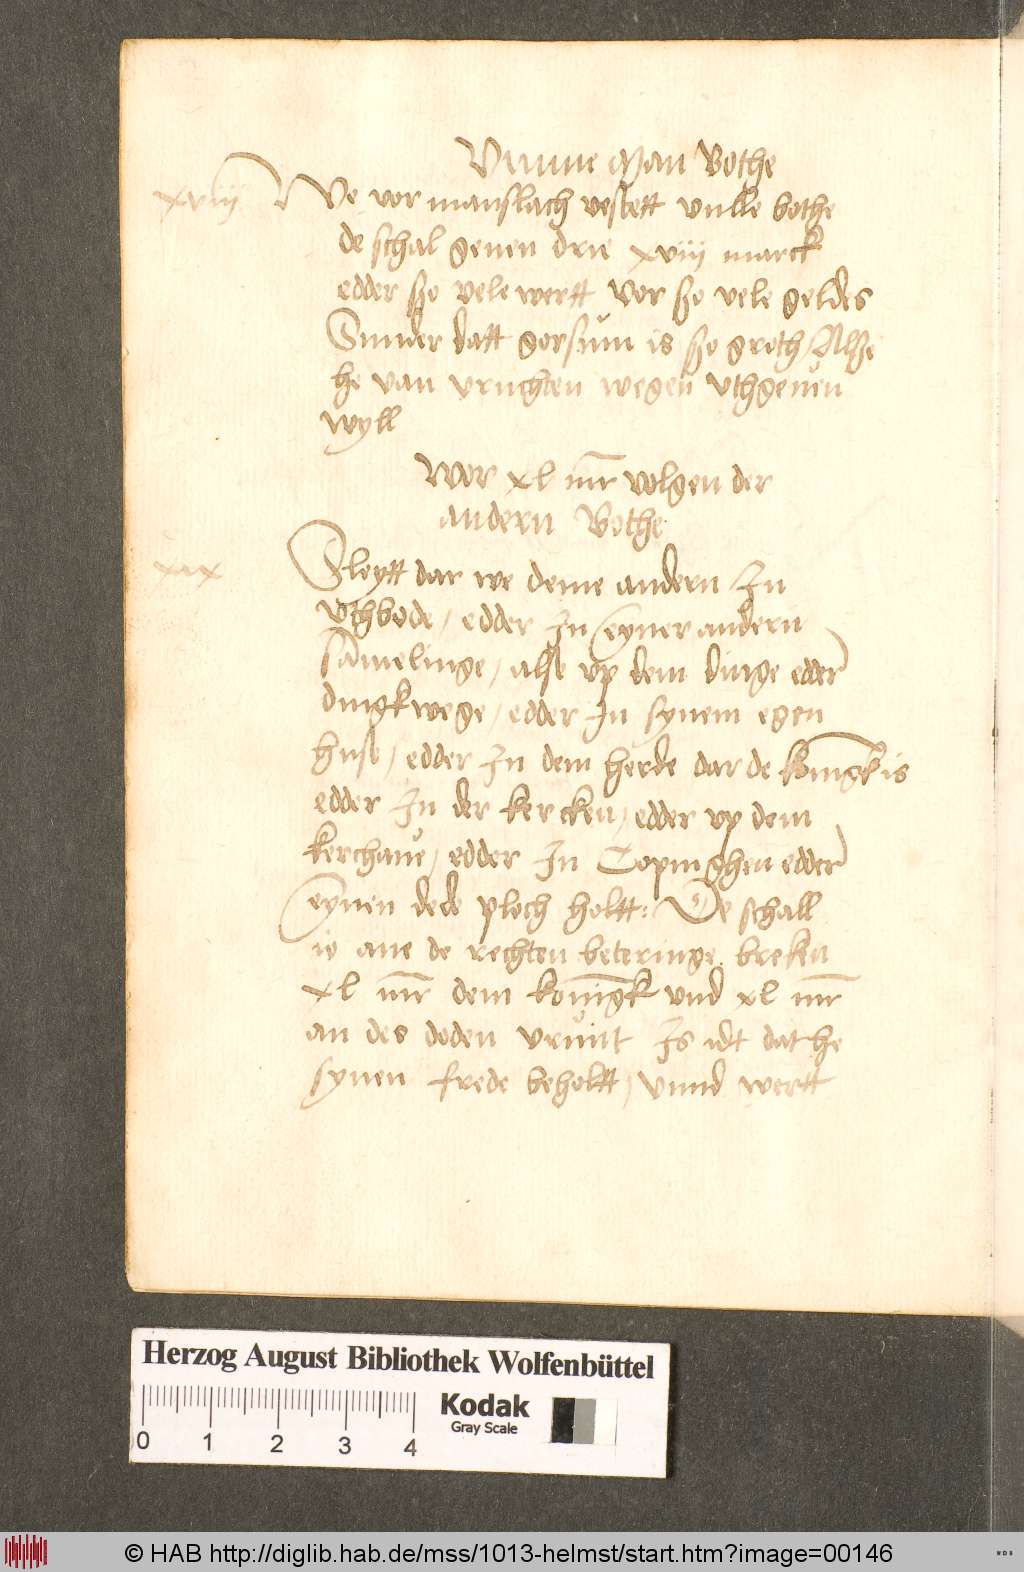 Vmme Man Bothe
xviij We vor manslach vestett vulle bothe
de schal geuen drie xviij marck
edder szo vele wertt vor szo vele geldes
Sunder datt gorsum is szo groth / Alsze
he van vruchten wegen vthgeuen
wyll
Wor xl mr volgen der
andern Bothe
xix Sleytt dar we deme andern In
vthbode, edder In eyner andern
samelinge, alse vp dem dinge edder
dingkwege, edder In synem egen
huse, edder In dem herde dar de konigk is
edder In der kercken, edder vp dem
kerchaue, edder In Copinghen edder
eynen dede ploch holtt: De schall
io ane de rechten beteringe breken
xl mr dem konigk vnd xl mr
an des doden vrunt Is idt dat he
synen frede beholtt, vnnd wertt
Herzog August Bibliothek Wolfenbüttel
Kodak
Gray Scale
0 1 2 3 4
© HAB http://diglib.hab.de/mss/1013-helmst/start.htm?image=00146